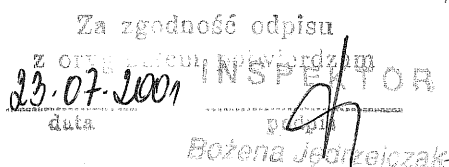 Za zgodność odpisu
z oryginałem potwierdzam
INSPEKTOR
23.07.2001
data podpis
Bożena Jędrzejczak